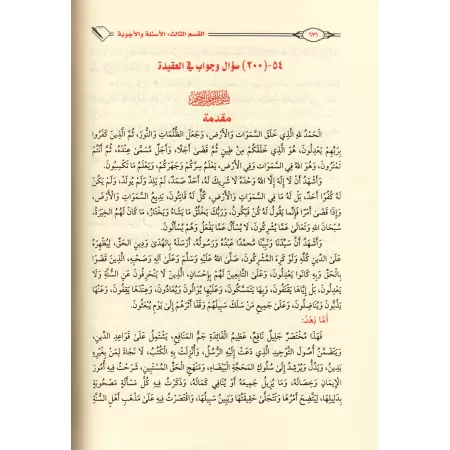 القسم الثالث: الأسئلة والأجوبة
٦٧٦
٥٤- (٢٠٠) سؤال وجواب في العقيدة
بسم الله الرحمن الرحيم
مقدمة
الْحَمْدُ لِلَّهِ الَّذِي خَلَقَ السَّمَوَاتِ وَالْأَرْضَ، وَجَعَلَ الظُّلُمَاتِ وَالنُّورَ، ثُمَّ الَّذِينَ كَفَرُوا
بِرَبِّهِمْ يَعْدِلُونَ، هُوَ الَّذِي خَلَقَكُمْ مِنْ طِينٍ ثُمَّ قَضَى أَجَلًا، وَأَجَلٌ مُسَمًّى عِنْدَهُ، ثُمَّ أَنْتُمْ
تَمْتَرُونَ، وَهُوَ اللَّهُ فِي السَّمَوَاتِ وَفِي الْأَرْضِ، يَعْلَمُ سِرَّكُمْ وَجَهْرَكُمْ، وَيَعْلَمُ مَا تَكْسِبُونَ.
وَأَشْهَدُ أَنْ لَا إِلَهَ إِلَّا اللَّهُ وَحْدَهُ لَا شَرِيكَ لَهُ، أَحَدٌ صَمَدٌ، لَمْ يَلِدْ وَلَمْ يُولَدْ، وَلَمْ يَكُنْ
لَهُ كُفُوًا أَحَدٌ، بَلْ لَهُ مَا فِي السَّمَوَاتِ وَالْأَرْضِ، كُلٌّ لَهُ قَانِتُونَ، بَدِيعُ السَّمَوَاتِ وَالْأَرْضِ،
وَإِذَا قَضَى أَمْرًا فَإِنَّمَا يَقُولُ لَهُ كُنْ فَيَكُونُ، وَرَبُّكَ يَخْلُقُ مَا يَشَاءُ وَيَخْتَارُ، مَا كَانَ لَهُمُ الْخِيَرَةُ،
سُبْحَانَ اللَّهِ وَتَعَالَى عَمَّا يُشْرِكُونَ، لَا يُسْأَلُ عَمَّا يَفْعَلُ وَهُمْ يُسْأَلُونَ.
وَأَشْهَدُ أَنَّ سَيِّدَنَا وَنَبِيَّنَا مُحَمَّدًا عَبْدُهُ وَرَسُولُهُ، أَرْسَلَهُ بِالْهُدَى وَدِينِ الْحَقِّ، لِيُظْهِرَهُ
عَلَى الدِّينِ كُلِّهِ وَلَوْ كَرِهَ الْمُشْرِكُونَ، صَلَّى اللَّهُ عَلَيْهِ وَسَلَّمَ وَعَلَى آلِهِ وَصَحْبِهِ، الَّذِينَ قَضَوْا
بِالْحَقِّ وَبِهِ كَانُوا يَعْدِلُونَ، وَعَلَى التَّابِعِينَ لَهُمْ بِإِحْسَانٍ، الَّذِينَ لَا يَنْحَرِفُونَ عَنِ السُّنَّةِ وَلَا
يَعْدِلُونَ، بَلْ إِيَّاهَا يَقْتَفُونَ، وَبِهَا يَتَمَسَّكُونَ، وَعَلَيْهَا يُوَالُونَ وَيُعَادُونَ، وَعِنْدَهَا يَقِفُونَ، وَعَنْهَا
يَذُبُّونَ وَيُنَاضِلُونَ، وَعَلَى جَمِيعِ مَنْ سَلَكَ سَبِيلَهُمْ وَقَفَا أَثَرَهُمْ إِلَى يَوْمِ يُبْعَثُونَ.
أَمَّا بَعْدُ:
فَهَذَا مُخْتَصَرٌ جَلِيلٌ نَافِعٌ، عَظِيمُ الْفَائِدَةِ جَمُّ الْمَنَافِعِ، يَشْتَمِلُ عَلَى قَوَاعِدِ الدِّينِ،
وَيَتَضَمَّنُ أُصُولَ التَّوْحِيدِ الَّذِي دَعَتْ إِلَيْهِ الرُّسُلُ، وَأُنْزِلَتْ بِهِ الْكُتُبُ، لَا نَجَاةَ لِمَنْ بِغَيْرِهِ
يَدِينُ، وَيَدُلُّ وَيُرْشِدُ إِلَى سُلُوكِ الْمَحَجَّةِ الْبَيْضَاءِ، وَمَنْهَجِ الْحَقِّ الْمُسْتَبِينِ، شَرَحْتُ فِيهِ أُمُورَ
الْإِيمَانِ وَخِصَالَهُ، وَمَا يُزِيلُ جَمِيعَهُ أَوْ يُنَافِي كَمَالَهُ، وَذَكَرْتُ فِيهِ كُلَّ مَسْأَلَةٍ مَصْحُوبَةً
بِدَلِيلِهَا، لِيَتَّضِحَ أَمْرُهَا وَتَتَجَلَّى حَقِيقَتُهَا وَيَبِينَ سَبِيلُهَا، وَاقْتَصَرْتُ فِيهِ عَلَى مَذْهَبِ أَهْلِ السُّنَّةِ